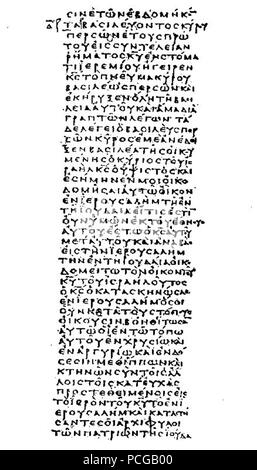 ϹΙΝΕΤΩΝΕΒΔΟΜΗΚ
ΤΑΒΑϹΙΛΕΥΟΝΤΟϹΚΥΡΥ
ΠΕΡϹΩΝΕΤΟΥϹΠΡΩ
ΤΟΥΕΙϹϹΥΝΤΕΛΕΙΑΝ
ΡΗΜΑΤΟϹΚΥΕΝϹΤΟΜΑ
ΤΙΙΕΡΕΜΙΟΥΗΓΕΙΡΕΝ
ΚϹΤΟΠΝΕΥΜΑΚΥΡΟΥ
ΒΑϹΙΛΕΩϹΠΕΡϹΩΝΚΑΙ
ΕΚΗΡΥΞΕΝΟΛΗΤΗΒΑϹΙ
ΛΕΙΑΑΥΤΟΥΚΑΙΑΜΑΔΙΑ
ΓΡΑΠΤΩΝΛΕΓΩΝΤΑ
ΔΕΛΕΓΕΙΟΒΑϹΙΛΕΥϹΠΕΡ
ϹΩΝΚΥΡΟϹΕΜΕΑΝΕΔΕΙ
ΞΕΝΒΑϹΙΛΕΑΤΗϹΟΙΚΥ
ΜΕΝΗϹΟΚΥΡΙΟϹΤΟΥΙϹ
ΡΑΗΛΚϹΟΥΨΙϹΤΟϹΚΑΙ
ΕϹΗΜΗΝΕΝΜΟΙΟΙΚΟ
ΔΟΜΗϹΑΙΑΥΤΩΟΙΚΟΝ
ΕΝΙΕΡΟΥϹΑΛΗΜΤΗΕΝ
ΤΗΙΟΥΔΑΙΑΕΙΤΙϹΕϹΤΙ
ΟΥΝΥΜΩΝΕΚΤΟΥΕΘΝΟΥ
ΑΥΤΟΥΕϹΤΩΟΚϹΑΥΤΟΥ
ΜΕΤΑΥΤΟΥΚΑΙΑΝΑΒΑϹ
ΕΙϹΤΗΝΙΕΡΟΥϹΑΛΗΜ
ΤΗΝΕΝΤΗΙΟΥΔΑΙΑΟΙΚΟ
ΔΟΜΕΙΤΩΤΟΝΟΙΚΟΝΤΟΥ
ΚΥΤΟΥΙϹΡΑΗΛΟΥΤΟϹ
ΟΚϹΟΚΑΤΑϹΚΗΝΩϹΑϹ
ΕΝΙΕΡΟΥϹΑΛΗΜΟϹΟΙ
ΟΥΝΚΑΤΑΤΟΥϹΤΟΠΟΥϹ
ΟΙΚΟΥϹΙΝΒΟΗΘΙΤΩϹΑ
ΑΥΤΩΟΙΕΝΤΩΤΟΠΩ
ΑΥΤΟΥΕΝΧΡΥϹΙΩΚΑΙ
ΕΝΑΡΓΥΡΙΩΚΑΙΕΝΔΟ
ϹΕϹΙΜΕΘΙΠΠΩΝΚΑΙ
ΚΤΗΝΩΝϹΥΝΤΟΙϹΑΛ
ΛΟΙϹΤΟΙϹΚΑΤΕΥΧΑϹ
ΠΡΟϹΤΕΘΕΙΜΕΝΟΙϹΕΙϹ
ΤΟΙΕΡΟΝΤΟΥΚΥΤΟΥΕΝΙ
ΕΡΟΥϹΑΛΗΜΚΑΙΚΑΤΑϹΤΗ
ϹΑΝΤΕϹΟΙΑΡΧΙΦΥΛΟΙ
ΤΩΝΠΑΤΡΙΩΝΤΗϹΙΟΥΔΑ